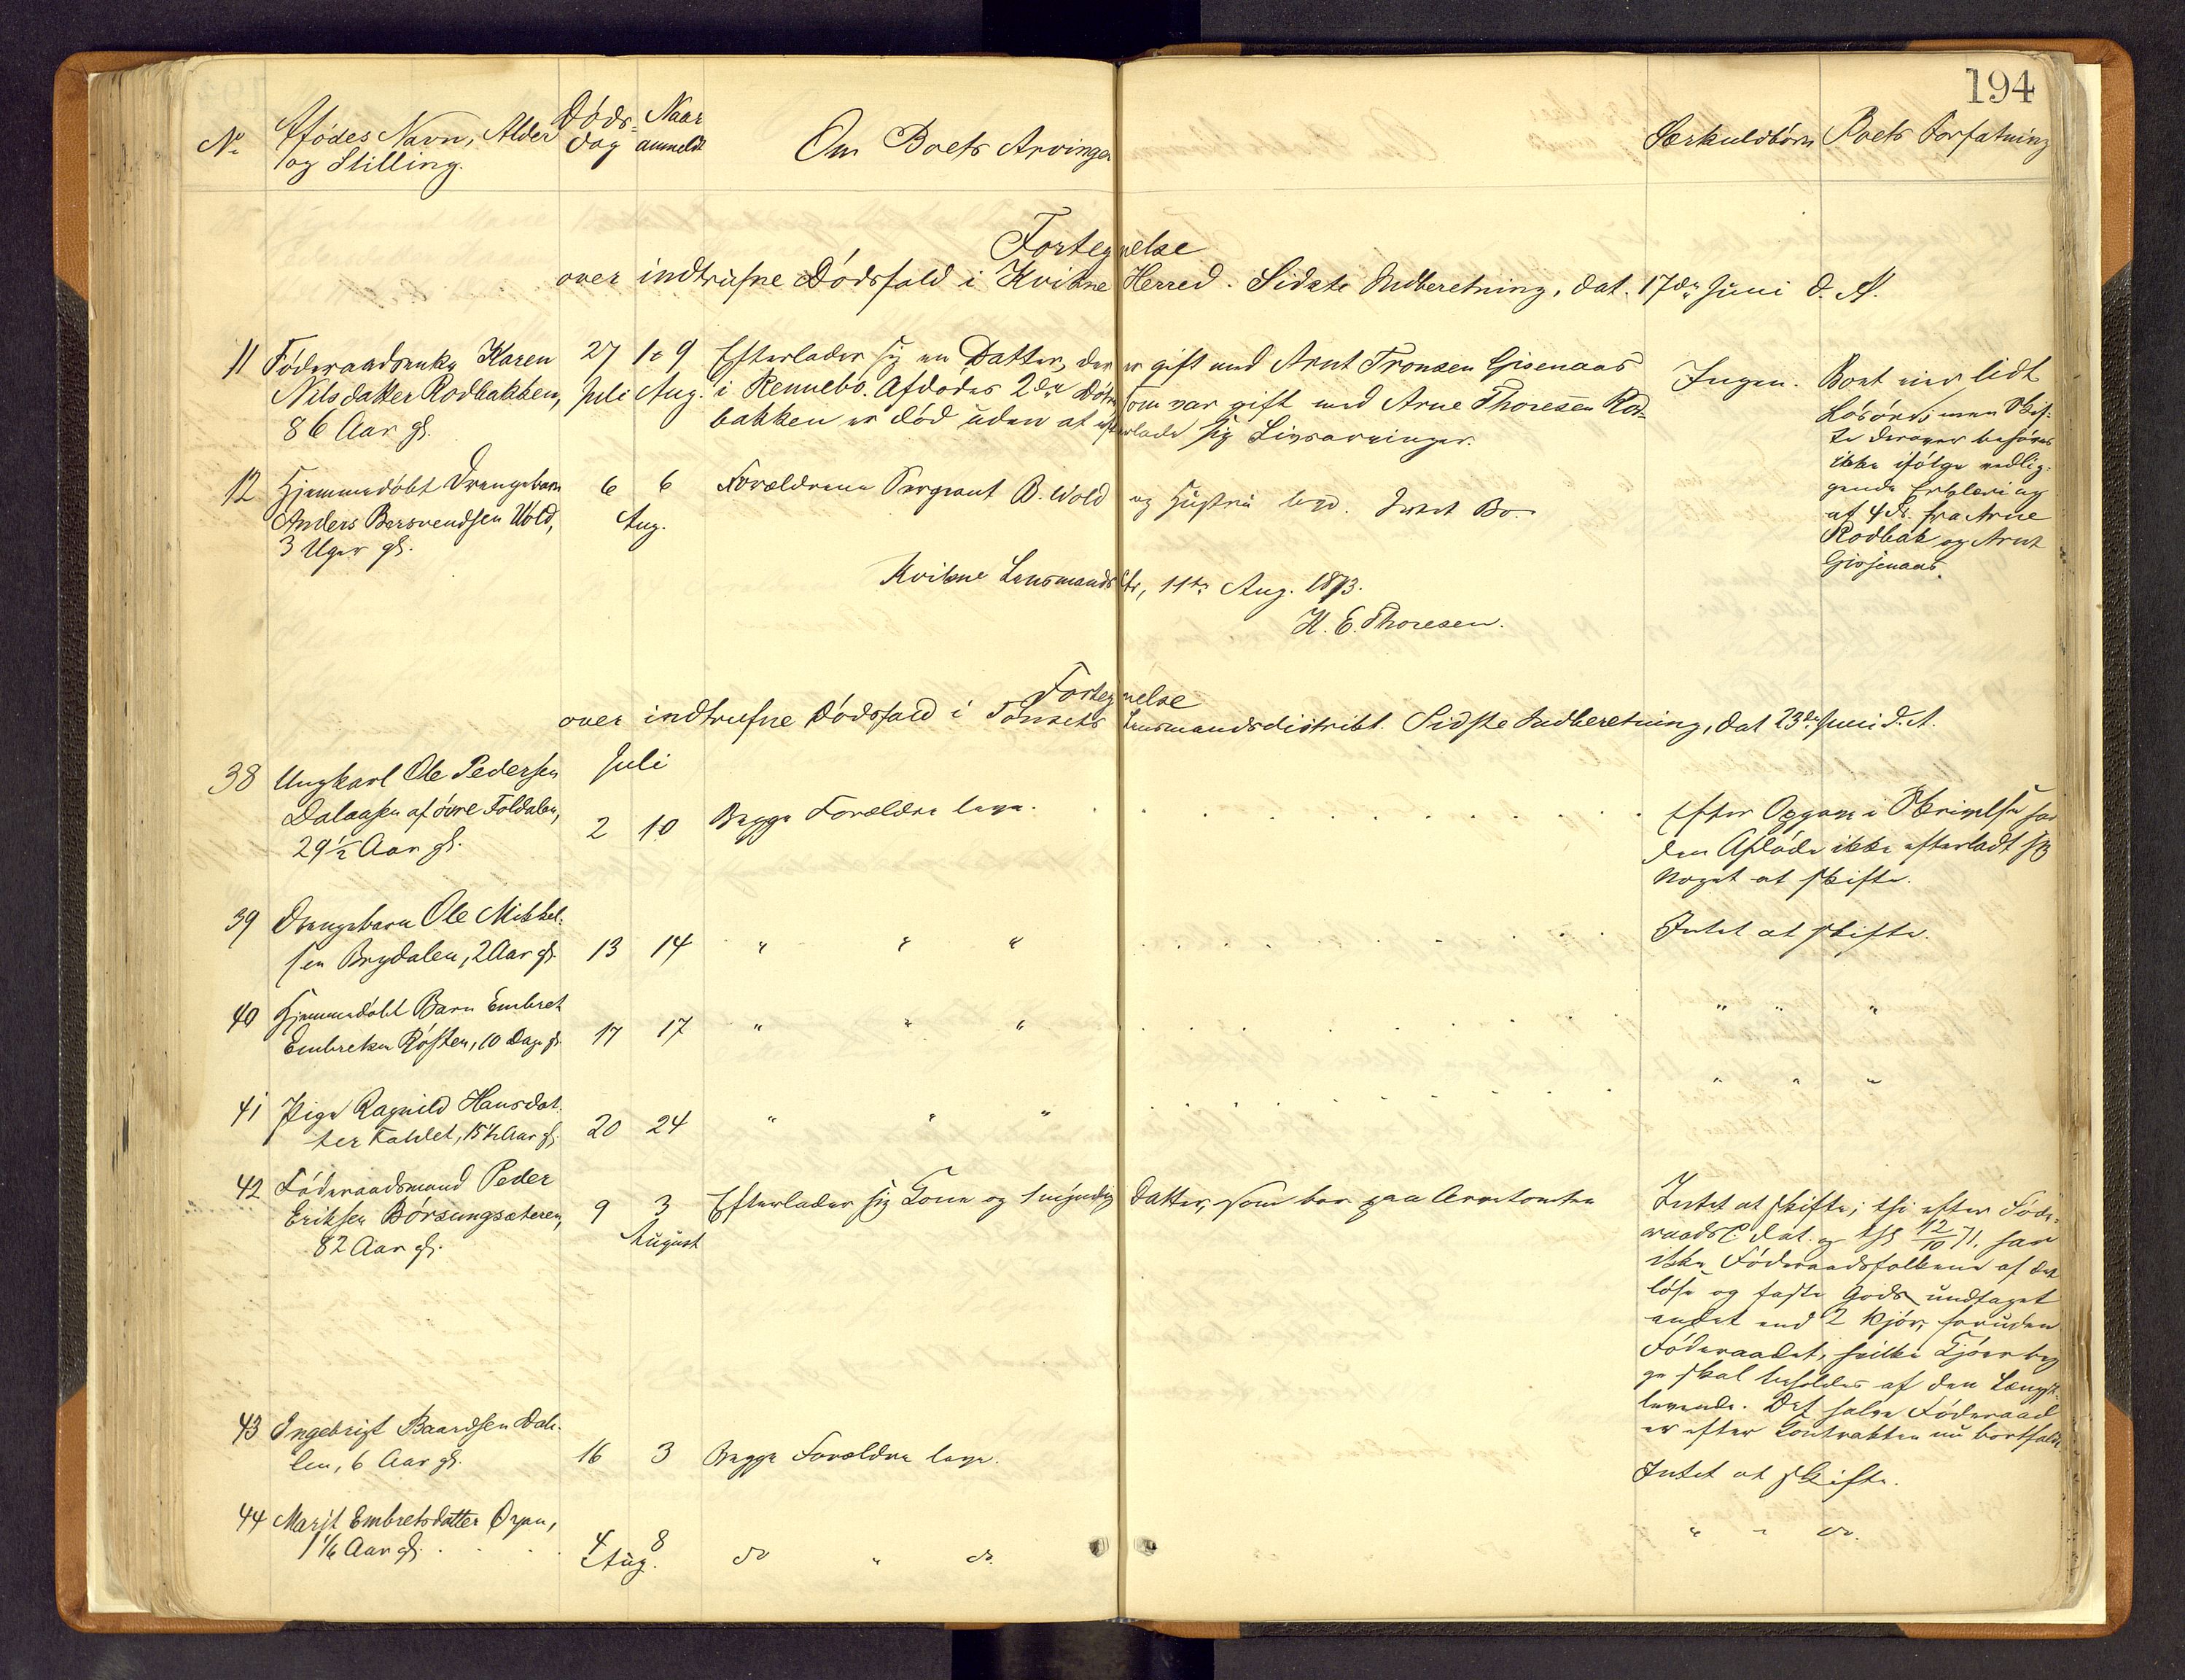 194
No Afdødes Navn, Alder Døds- Naar Om Boets Arvinger Særkuldbørn Boets Forfatning
og Stilling. dag anmeldt
Fortegnelse
over indtrufne Dødsfald i Kvikne Herred. Sidste Indberetning, dat. 17de Juni d. A.
11 Føderaadsenke Karen 27 1 & 9 Efterlader sig en Datter, der er gift med Arnt Tronsen Gisenaas Ingen. Boet eier lidt
Nilsdatter Rodbakken, Juli Aug. i Rennebo. Afdødes 2den Datter som var gift med Arne Thoresen Rod- Løsøre; men Skif-
86 Aar gl. bakken er død uden at efterlade sig Livsarvinger. te derover behøves
ikke ifølge vedlig-
gende Erklæring
af 4ds. fra Arne
Rodbak og Arnt
Gisenaas.
12 Hjemmedøbt Drengebarn 6 6 Forældrene Sergeant B. Wold og Hustru leve. Intet Bo.
Anders Bersvendsen Wold, Aug.
3 Uger gl.
Kvikne Lensmandsktr, 11te Aug. 1873.
H. E. Thoresen.
Fortegnelse
over indtrufne Dødsfald i Tønsets Lensmandsdistrikt. Sidste Indberetning, dat 23de Juni d. A.
38 Ungkarl Ole Pedersen Juli
Dalaasen af øvre Foldalen, 2 10 Begge Forældre leve. Efter Opgave i Skrivelse har
29½ Aar gl. den Afdøde ikke efterladt sig
Noget at skifte.
39 Drengebarn Ole Mikkel- Intet at skifte.
sen Brydalen, 2 Aar gl. 13 14 " " "
40 Hjemmedøbt Barn Embret " " "
Embretsen Røsten, 10 Dage gl. 17 17 " " "
41 Pige Ragnild Hansdat- " " "
ter Fahlet, 15½ Aar gl. 20 24 " " "
42 Føderaadsmand Peder
Eriksen Børsungsæteren, 9 3 Efterlader sig Kone og 1 myndig Datter, som bor paa Arvetomten Intet at skifte; thi efter Føde-
82 Aar gl. August raadsC. dat. og thl 12/10 71, har
ikke Føderaadsfolkene af det
løse og faste Gods undtaget
andet end 2 Kjør, foruden
Føderaadet, hvilke Kjøer beg-
ge skal beholdes af den Længst-
levende. Det halve Føderaad
er efter Contrakten nu bortfaldt.
43 Ingebrigt Baardsen Dah-
len, 6 Aar gl. 16 3 Begge Forældre leve. Intet at skifte.
44 Marit Embretsdatter Øyen,
1 1/6 Aar gl. 4 8 do " do. " " do.
Aug.